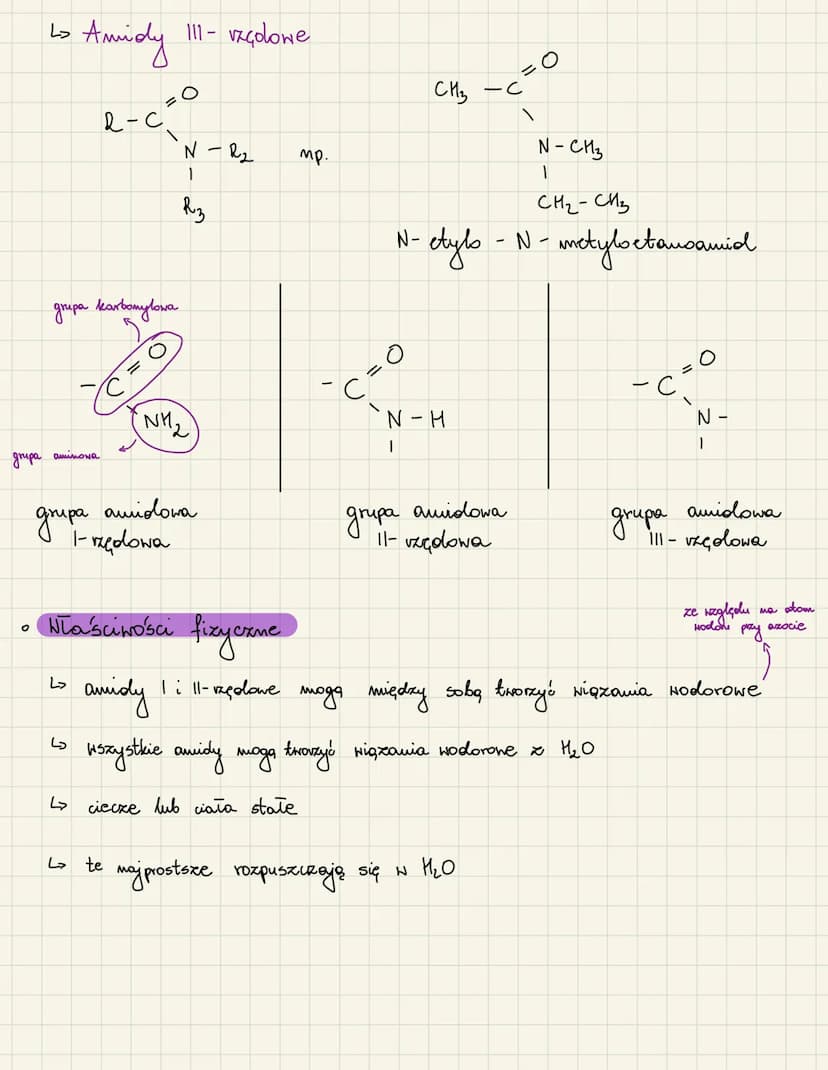 ↳ Amidy III-rzędowe
R-C=O
N-R2
R3
np.
CH3-C=O
N-CH3
CH2-CH3
N-etylo-N-metyloetanoamid
grupa karbonylowa
-C=O
NH2
grupa aminowa
grupa amidowa
I-rzędowa
-C=O
N-H
grupa amidowa
II-rzędowa
-C=O
N-
grupa amidowa
III-rzędowa
• Właściwości fizyczne
ze względu na atom
wodoru przy azocie
↳ amidy I i II-rzędowe mogą między sobą tworzyć wiązania wodorowe
↳ wszystkie amidy mogą tworzyć wiązania wodorowe z H2O
↳ ciecze lub ciała stałe
↳ te najprostsze rozpuszczają się w H2O